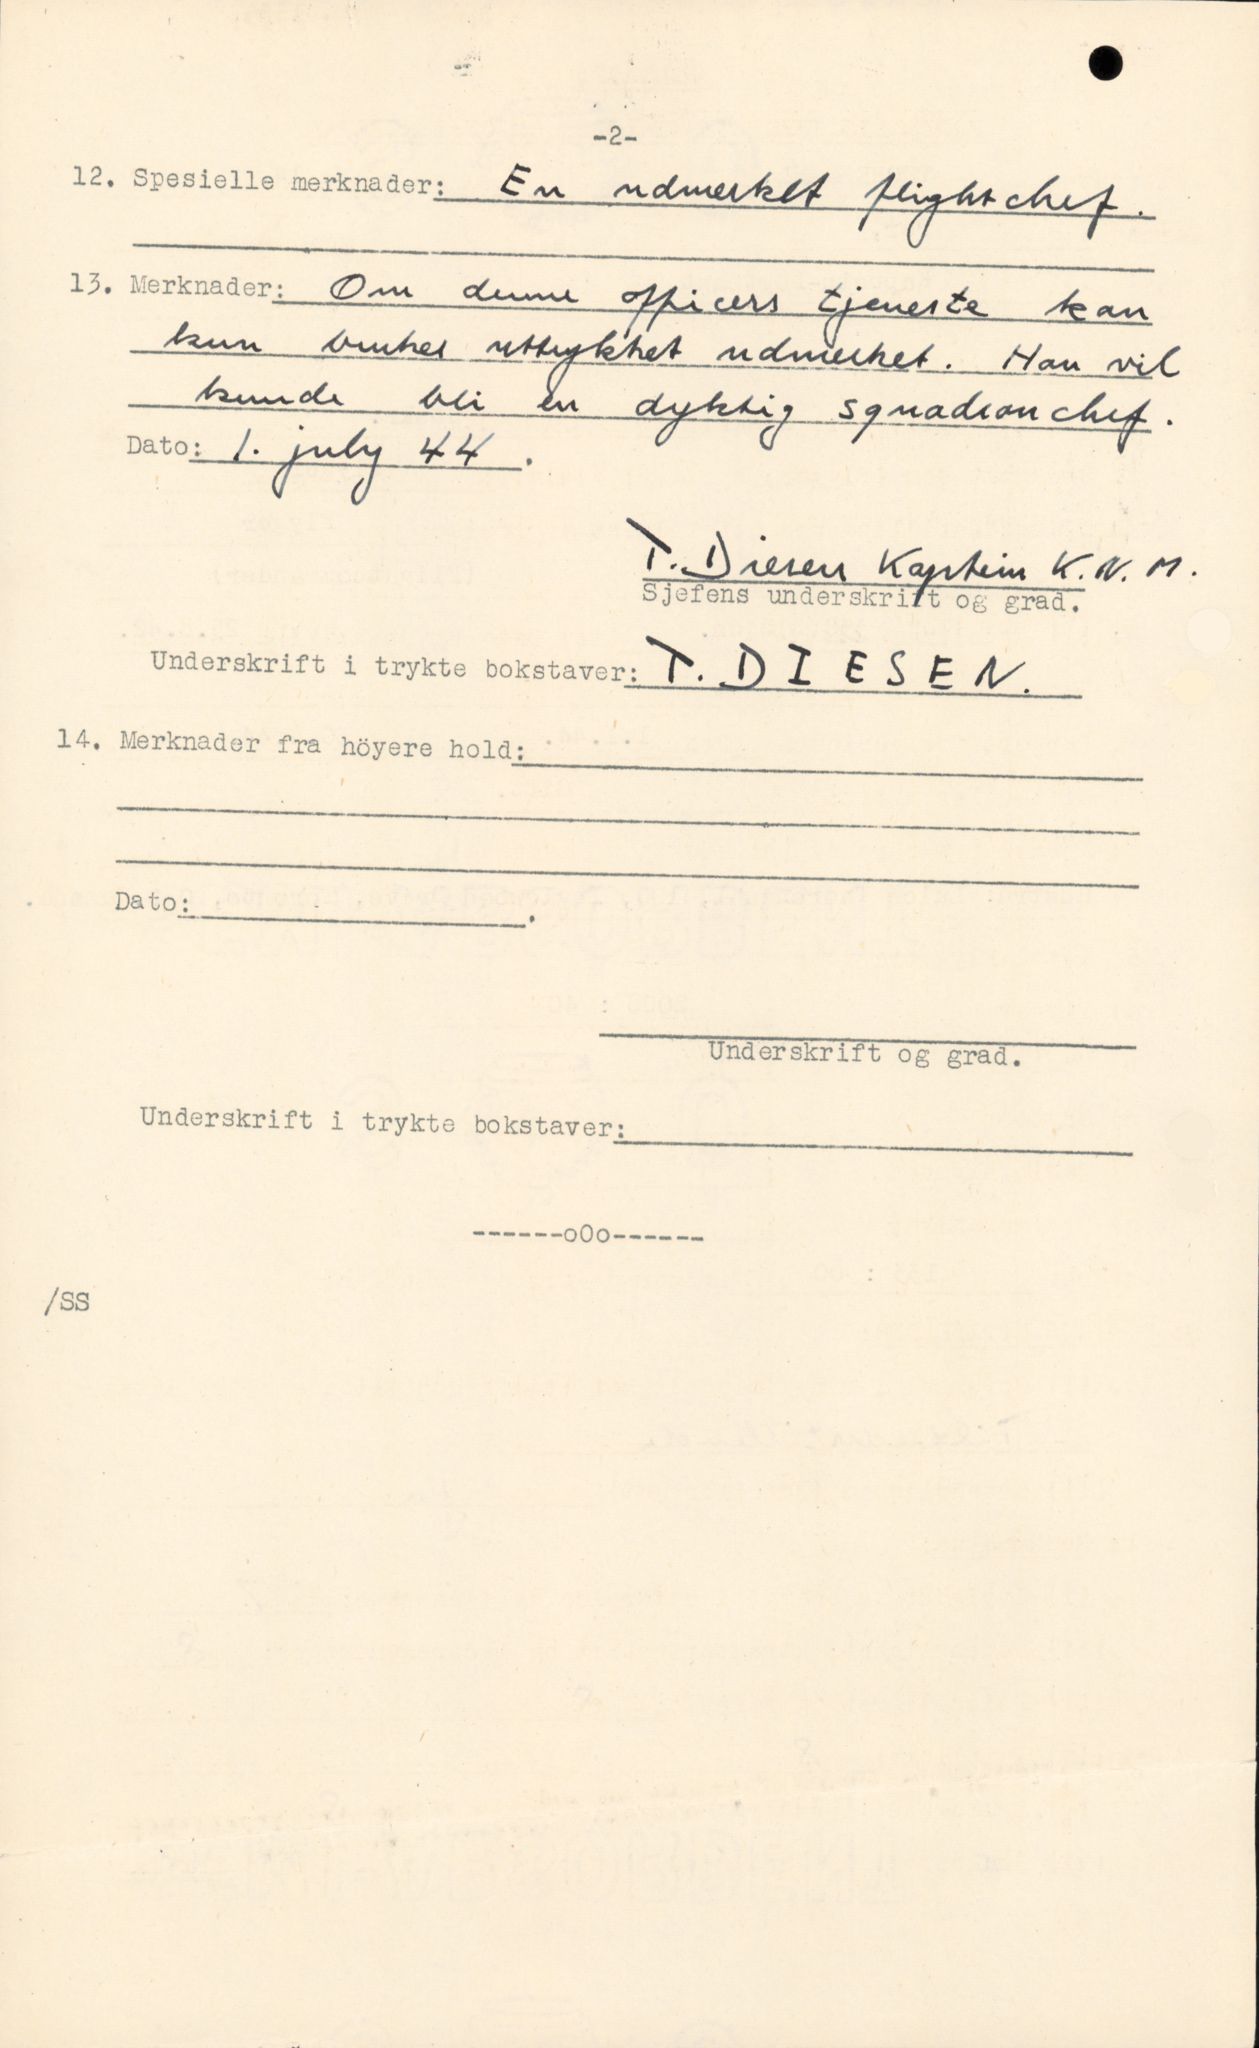 -2-
12. Spesielle merknader: En udmerket flightchef.
13. Merknader: Om denne officers tjeneste kan
kun brukes uttrykket udmerket. Han vil
kunde bli en dyktig squadronchef.
Dato: 1. july 44.
T. Diesen Kaptein K.N.M.
Sjefens underskrift og grad.
Underskrift i trykte bokstaver: T. DIESEN.
14. Merknader fra höyere hold:
Dato: .
Underskrift og grad.
Underskrift i trykte bokstaver:
------oOo------
/SS